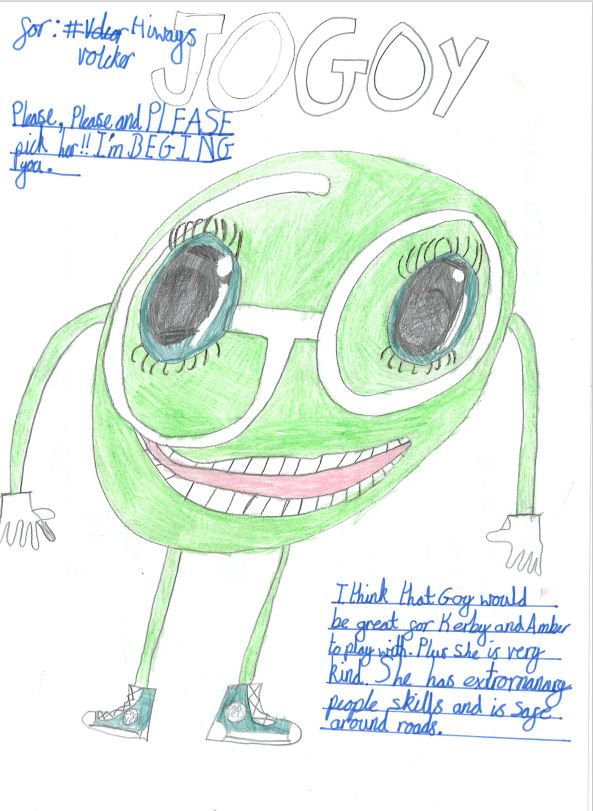 for: # Hiways
JOGOY
Please, Please and PLEASE
pick her!! I'm BEGING
you.
I think that Goy would
be great for Kerby and Amber
to play with. Plus she is very
kind. She has
people skills and is safe
around roads.